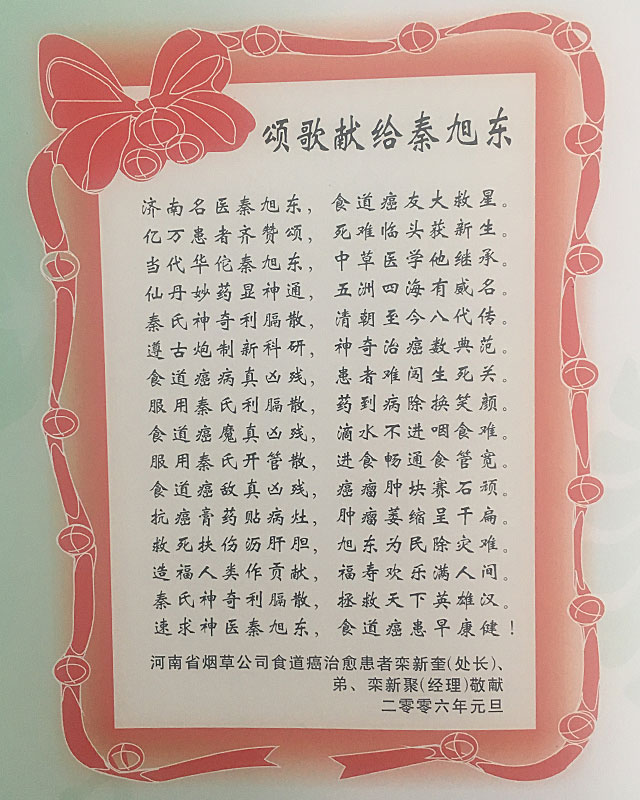 颂歌献给秦旭东
济南名医秦旭东，食道癌友大救星。
亿万患者齐赞颂，死难临头获新生。
当代华佗秦旭东，中草医学他继承。
仙丹妙药显神通，五洲四海有威名。
秦氏神奇利膈散，清朝至今八代传。
遵古炮制新科研，神奇治癌数典范。
食道癌病真凶残，患者难闯生死关。
服用秦氏利膈散，药到病除换笑颜。
食道癌魔真凶残，滴水不进咽食难。
服用秦氏开管散，进食畅通食管宽。
食道癌敌真凶残，癌瘤肿块赛石顽。
抗癌膏药贴病灶，肿瘤萎缩呈干扁。
救死扶伤沥肝胆，旭东为民除灾难。
造福人类作贡献，福寿欢乐满人间。
秦氏神奇利膈散，拯救天下英雄汉。
速求神医秦旭东，食道癌患早康健！
河南省烟草公司食道癌治愈患者栾新奎(处长)、
弟、栾新聚(经理)敬献
二零零六年元旦